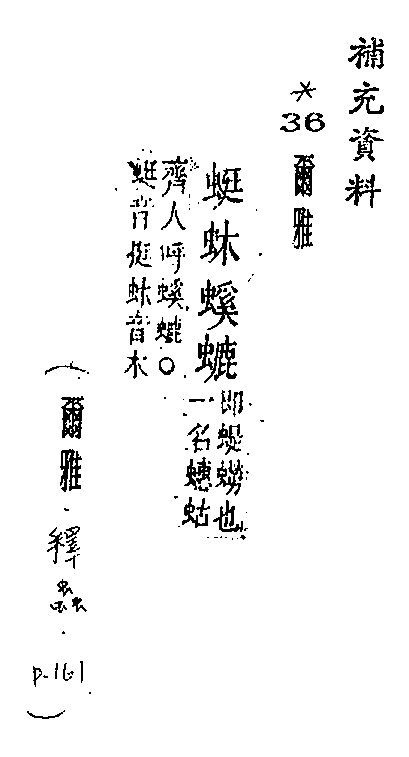 補充資料
*36 爾雅
蜓蚞螇螰
即蝭蟧也
一名蟪蛄
齊人呼螇螰○
蜓音挺蚞音木
(爾雅·釋蟲·p.161)